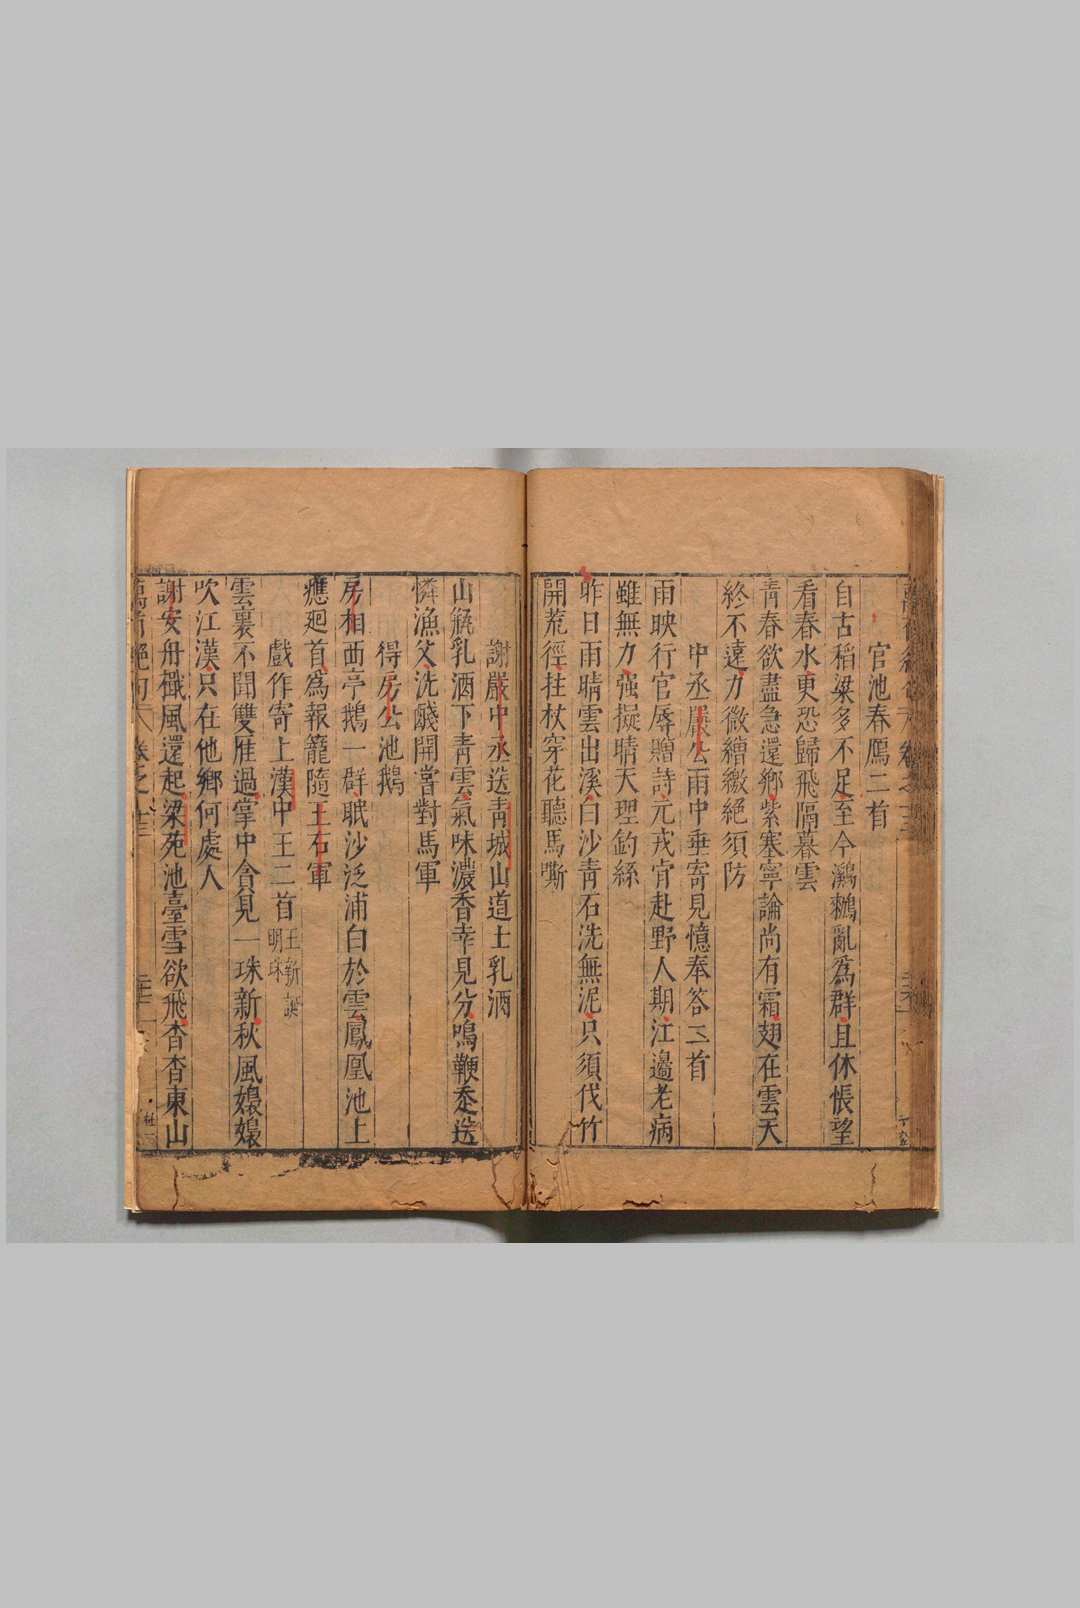 官池春鴈二首
自古稻粱多不足至今鸂鶒亂爲群且休悵望
看春水更恐歸飛隔暮雲
青春欲盡急還鄉紫塞寧論尚有霜翅在雲天
終不遠力微繒繳絕須防
中丞嚴公雨中垂寄見憶奉答二首
雨映行官辱贈詩元戎肯赴野人期江邊老病
雖無力强擬晴天理釣絲
昨日雨晴雲出溪白沙青石洗無泥只須伐竹
開荒徑拄杖穿花聽馬嘶
謝嚴中丞送青城山道士乳酒
山瓶乳酒下青雲氣味濃香幸見分鳴鞭走送
憐漁父洗醆開嘗對馬軍
得房公池鵝
房相西亭鵝一群眠沙泛浦白於雲鳳凰池上
應廻首爲報籠隨王右軍
戲作寄上漢中王二首 王新誕明珠
雲裏不聞雙雁過掌中貪見一珠新秋風嫋嫋
吹江漢只在他鄉何處人
謝安舟檝風還起梁苑池臺雪欲飛杳杳東山
萬首絕句 卷之十三